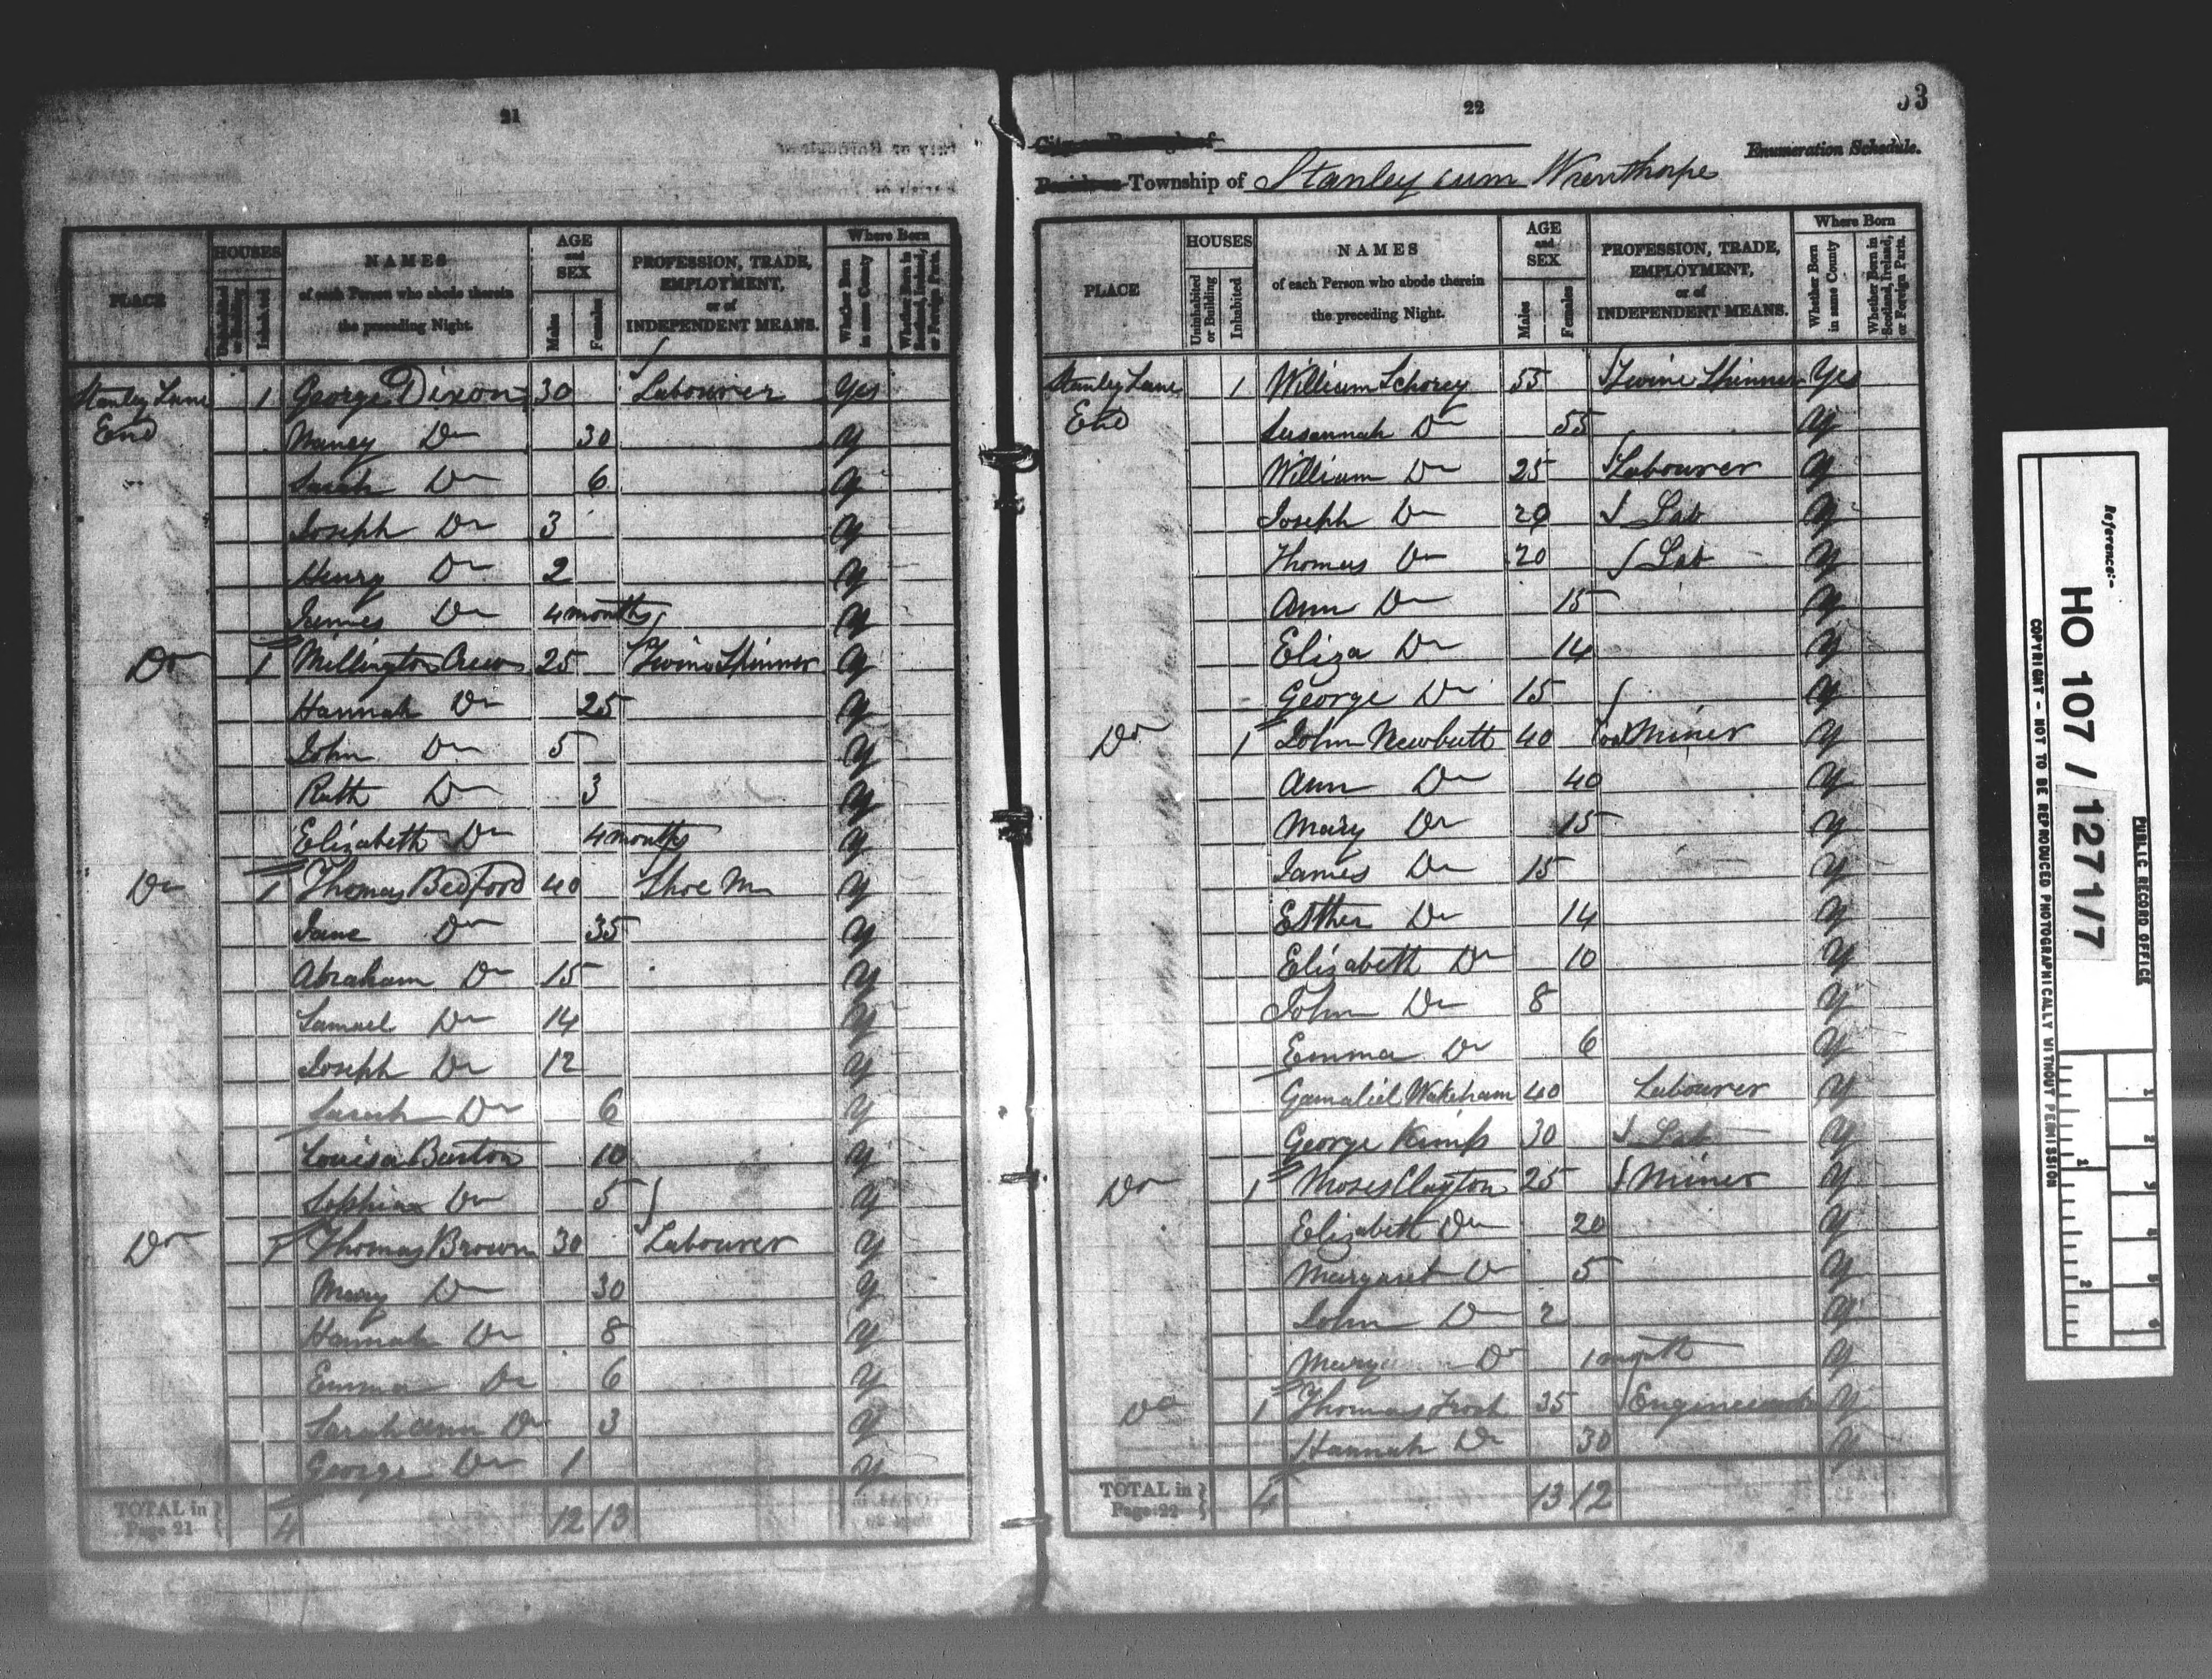 21
PLACE HOUSES NAMES of each Person who abode therein the preceding Night. AGE and SEX PROFESSION, TRADE, EMPLOYMENT, or of INDEPENDENT MEANS. Where Born
Uninhabited or Building Inhabited Males Females Whether Born in same County Whether Born in Scotland, Ireland, or Foreign Parts.
Stanley Lane 1 George Dixon 30 Labourer Yes
End Nancy Do 30 Y
Sarah Do 6 Y
Joseph Do 3 Y
Henry Do 2 Y
James Do 4 months Y
Do 1 Millington 25 Twine Spinner Y
Hannah Do 25 Y
John Do 5 Y
Ruth Do 3 Y
Elizabeth Do 4 months Y
Do 1 Thomas Bedford 40 Shoe M Y
Jane Do 35 Y
Abraham Do 15 Y
Samuel Do 14 Y
Joseph Do 12 Y
Sarah Do 6 Y
Louisa Burton 10 Y
Sophia Do 5 Y
Do 1 Thomas Brown 30 Labourer Y
Mary Do 30 Y
Hannah Do 8 Y
Emma Do 6 Y
Sarah Ann Do 3 Y
George Do 1 Y
TOTAL in Page 21 4 12 13
22
City or Borough of
Enumeration Schedule.
Parish or Township of Stanley cum Wrenthorpe
PLACE HOUSES NAMES of each Person who abode therein the preceding Night. AGE and SEX PROFESSION, TRADE, EMPLOYMENT, or of INDEPENDENT MEANS. Where Born
Uninhabited or Building Inhabited Males Females Whether Born in same County Whether Born in Scotland, Ireland, or Foreign Parts.
Stanley Lane 1 William Schorey 55 Twine Spinner Yes
End Susannah Do 55 Y
William Do 25 Labourer Y
Joseph Do 20 Lab Y
Thomas Do 20 Lab Y
Ann Do 15 Y
Eliza Do 14 Y
George Do 15 Y
Do 1 John Newbutt 40 Coal Miner Y
Ann Do 40 Y
Mary Do 15 Y
James Do 15 Y
Esther Do 14 Y
Elizabeth Do 10 Y
John Do 8 Y
Emma Do 6 Y
Gamaliel Wakeham 40 Labourer Y
George Kemp 30 Lab Y
Do 1 Moses Clayton 25 Miner Y
Elizabeth Do 20 Y
Margaret Do 5 Y
John Do 2 Y
Mary Do 1 month Y
Do 1 Thomas Frost 35 Y
Hannah Do 30 Y
TOTAL in Page 22 4 13 12
Reference:-
HO 107/1271/7
PUBLIC RECORD OFFICE
COPYRIGHT - NOT TO BE REPRODUCED PHOTOGRAPHICALLY WITHOUT PERMISSION
1 2 3 4 5 6
1 2